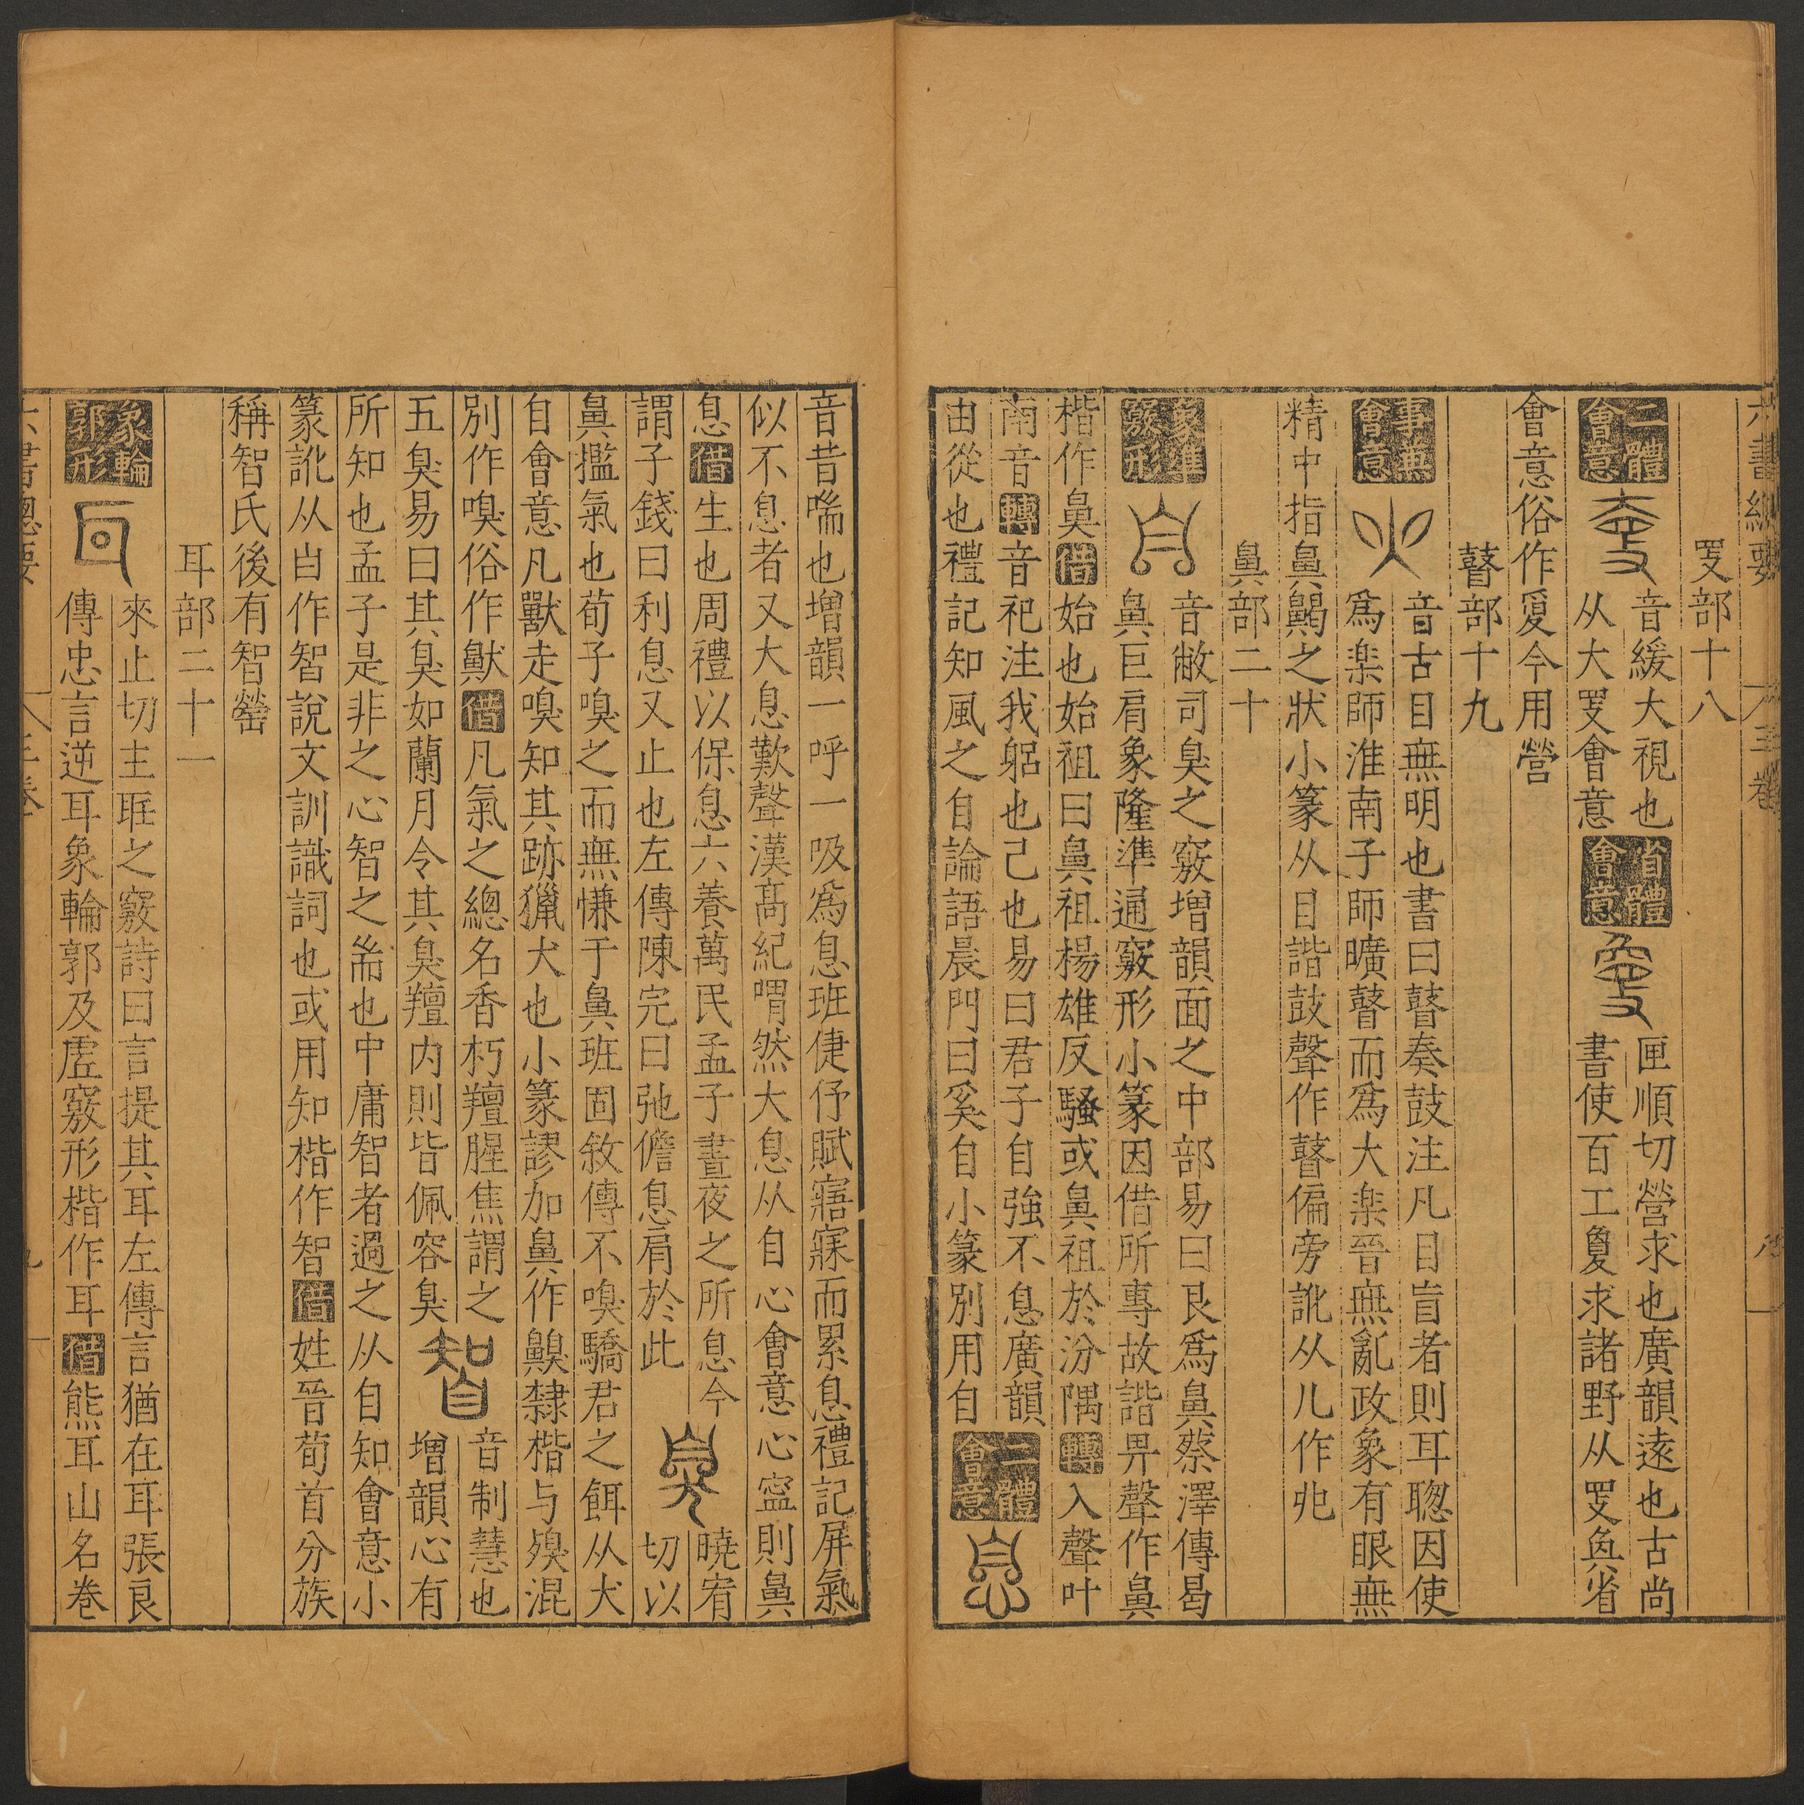 六書總要 三卷 八
𥄎部十八
二體會意 音緩大視也
从大𥄎會意 省體會意 匣順切營求也廣韻遠也古尚
書使百工敻求諸野从𥄎奐省
會意俗作敻今用營
瞽部十九
事兼會意 音古目無明也書曰瞽奏鼓注凡目盲者則耳聰因使
爲楽師淮南子師曠瞽而爲大楽晉無亂政象有眼無
精中指鼻䫥之狀小篆从目諧鼓聲作瞽偏旁訛从儿作𠑹
鼻部二十
象準竅形 音敝司臭之竅增韻面之中部易曰艮爲鼻蔡澤傳曷
鼻巨肩象隆準通竅形小篆因借所專故諧畀聲作鼻
楷作鼻借始也始祖曰鼻祖楊雄反騷或鼻祖於汾隅轉入聲叶
南音轉音祀注我躬也己也易曰君子自強不息廣韻
由從也禮記知風之自論語晨門曰奚自小篆別用自 二體會意
音昔喘也增韻一呼一吸爲息班倢伃賦寤寐而累息禮記屏氣
似不息者又大息歎聲漢高紀喟然大息从自心會意心寍則鼻
息借生也周禮以保息六養萬民孟子晝夜之所息今
謂子錢曰利息又止也左傳陳完曰弛儋息肩於此 曉宥
切以
鼻㩜氣也荀子嗅之而無慊于鼻班固敘傳不嗅驕君之餌从犬
自會意凡獸走嗅知其跡獵犬也小篆謬加鼻作齅隸楷与殠混
別作嗅俗作䶈借凡氣之總名香朽羶腥焦謂之
五臭易曰其臭如蘭月令其臭羶内則皆佩容臭 音制慧也
增韻心有
所知也孟子是非之心智之耑也中庸智者過之从自知會意小
篆訛从白作智說文訓識詞也或用知楷作智借姓晉荀首分族
稱智氏後有智罃
耳部二十一
象輪郭形 來止切主聑之竅詩曰言提其耳左傳言猶在耳張良
傳忠言逆耳象輪郭及虛竅形楷作耳借熊耳山名卷
六書總要 三卷 九